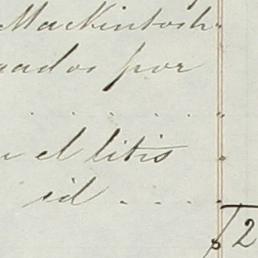 Mackintosh
por
el litis
id . . . .
2